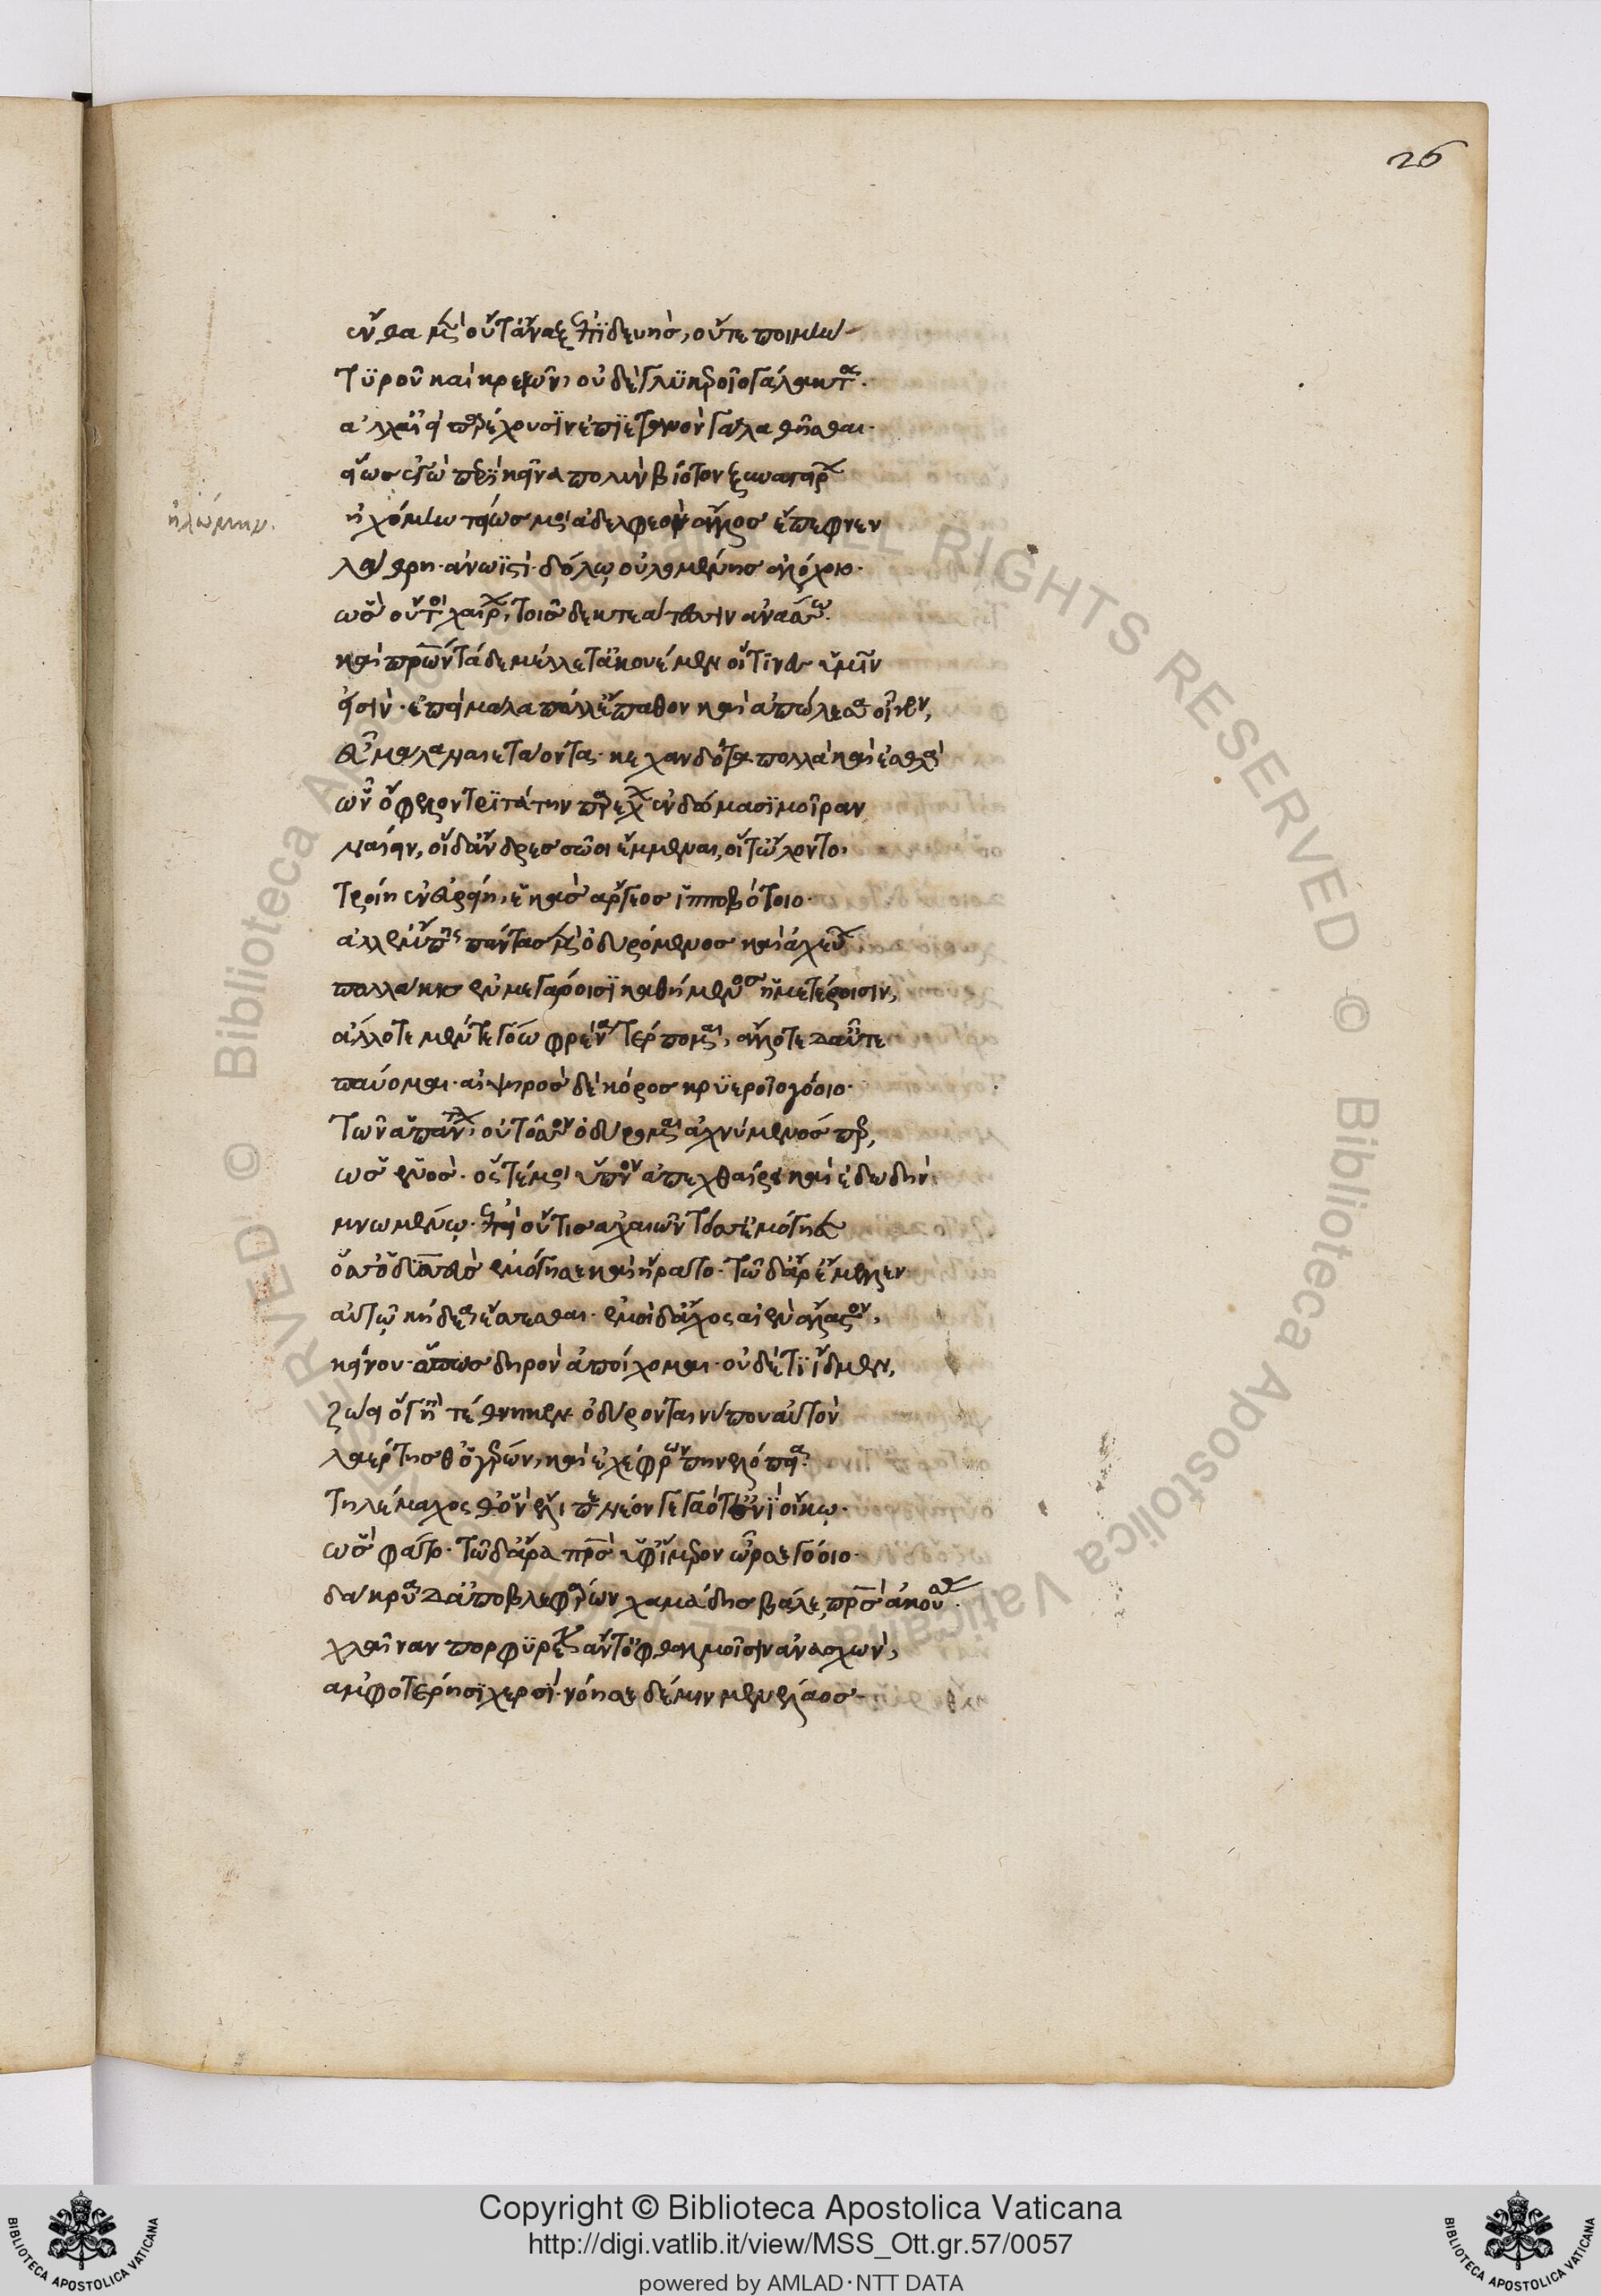 26
ἔνθα μὲν οὔτ' ἄναξ ἐπιδευὴς, οὔτε ποιμὴν
τυροῦ καὶ κρειῶν, οὐδὲ γλυκεροῖο γάλακτος.
ἀλλ' αἰεὶ παρέχουσιν ἐπηετανὸν γάλα θῆσθαι.
εἵως ἐγὼ περὶ κεῖνα πολὺν βίοτον ξυναγείρων
ἠχόμην τείως μοι ἀδελφεὸν ἄλλος ἔπεφνεν
ἠλώμην.
λάθρη. ἀνωϊστί. δόλῳ οὐλομένης ἀλόχου.
ὣς οὔτοι χαίρων, τοῖσδε κτεάτεσσιν ἀνάσσω.
καὶ πατέρων τάδε μέλλετ' ἀκουέμεν οἵτινες ὑμῖν
εἰσίν. ἐπεὶ μάλα πόλλ' ἔπαθον καὶ ἀπώλεσα οἶκον,
εὖ μάλα ναιετάοντα. κεχανδότα πολλὰ καὶ ἐσθλά
ὧν ὄφελον τριτάτην παρ ἔχων ἐν δώμασι μοῖραν
ναίειν, οἱ δ' ἄνδρες σῶοι ἔμμεναι, οἳ τ' ὤλοντο,
Τροίῃ ἐν εὐρείῃ, ἑκὰς ἄργεος ἱπποβότοιο.
ἀλλ' ἔμπης πάντας μὲν ὀδυρόμενος καὶ ἀχεύων
πολλάκις ἐν μεγάροισι καθήμενος ἡμετέροισιν,
ἄλλοτε μέν τε γόω φρένα τέρπομαι, ἄλλοτε δ' αὖτε
παύομαι. αἰψηρὸς δὲ κόρος κρυεροῖο γόοιο.
τῶν ἁπάντων, οὐ τόσσον ὀδύρομαι ἀχνύμενός περ,
ὡς ἑνὸς. ὅς τέ μοι ὕπνον ἀπεχθαίρει καὶ ἐδωδὴν
μνωμένῳ. ἐπεὶ οὔτις ἀχαιῶν τόσσ' ἐμόγησεν
ὅσσ' ὀδυσσεὺς ἐμόγησε καὶ ἤρατο. τῶ δ' ἄρ' ἔμελλεν
αὐτῷ κήδε' ἔσεσθαι. ἐμοὶ δ' ἄχος αἰὲν ἄλαστον,
κείνου. ὅπως δηρὸν ἀποίχομαι. οὐδέ τι ἴδμεν,
ζώει ὅγ' ἢ τέθνηκεν. ὀδύρονται νύ που αὐτὸν
λαέρτης θ' ὁ γέρων, καὶ ἐχέφρων πηνελόπεια.
τηλέμαχός θ' ὃν ἔλειπε νέον γεγαῶτ' ἐνὶ οἴκῳ.
ὣς φάτο. τῶ δ' ἄρα πατρὸς ὑφ' ἵμερον ὦρσε γόοιο.
δάκρυα δ' ἀπὸ βλεφάρων χαμάδης βάλε, πατρὸς ἀκούσας.
χλαῖναν πορφυρέην ἄντ' ὀφθαλμοῖσιν ἀνασχὼν,
ἀμφοτέρῃσι χερσί. νόησε δέ μιν μενέλαος.
Copyright © Biblioteca Apostolica Vaticana
http://digi.vatlib.it/view/MSS_Ott.gr.57/0057
powered by AMLAD·NTT DATA